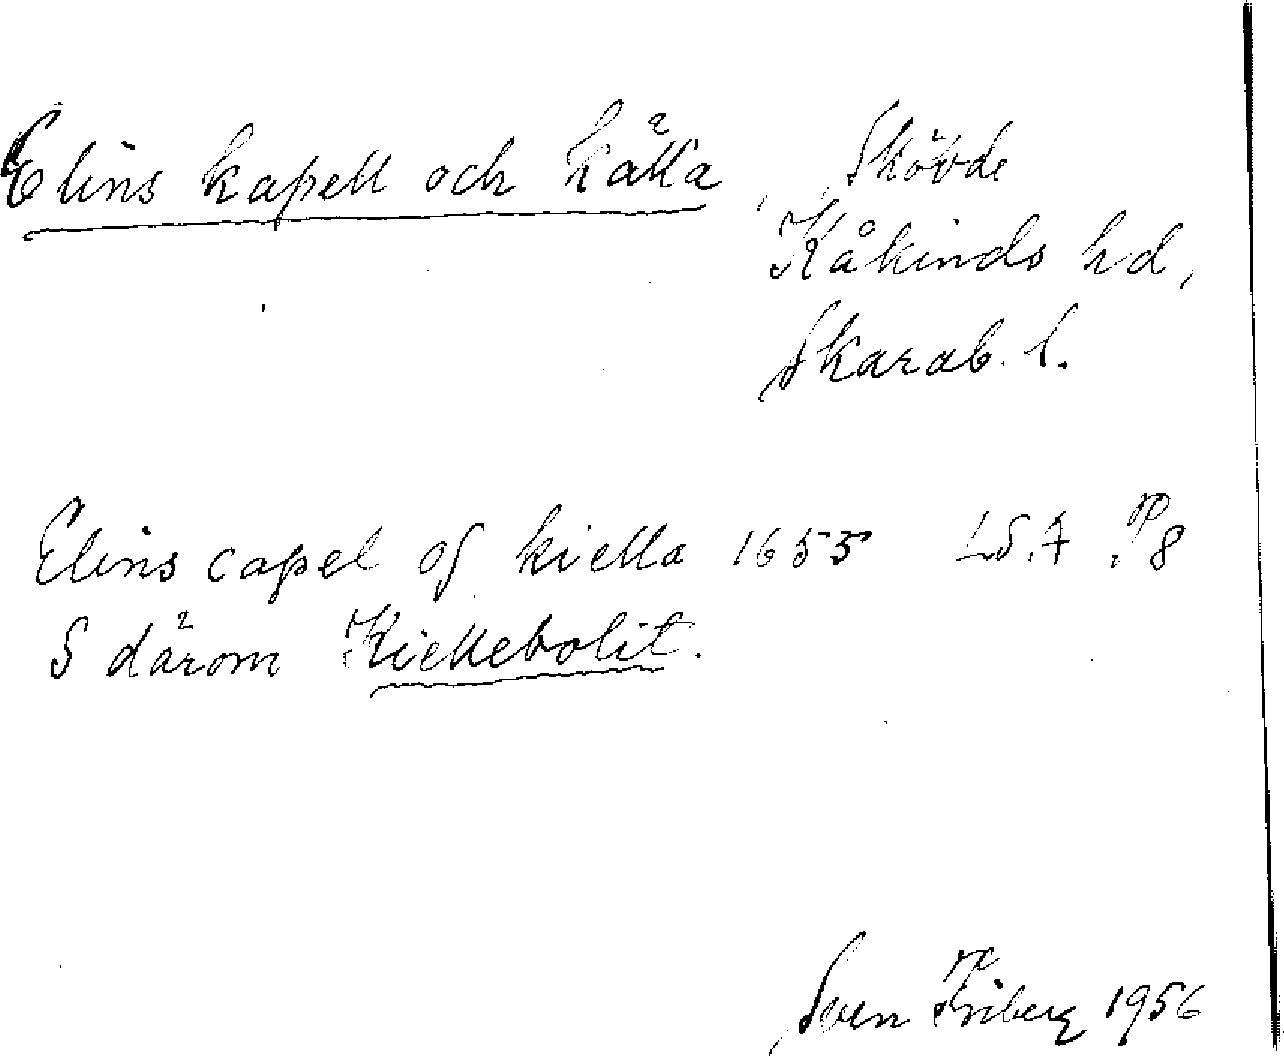 Elins kapell och källa
Skövde
Kåkinds hd,
Skarab. l.
Elins capel of kiella 1655 LSA P8
S därom Kiellebolit.
Sven Friberg 1956